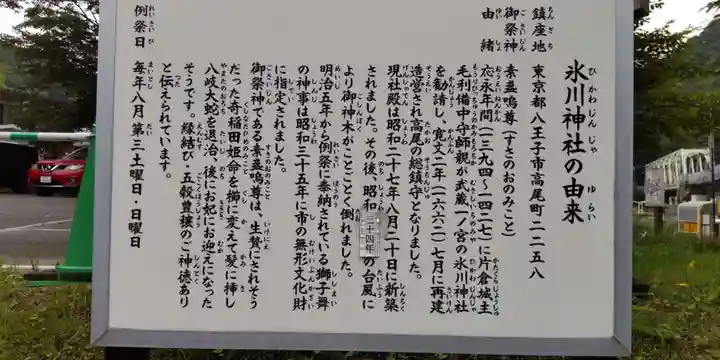 氷川神社の由来
ひかわじんじゃ ゆらい
鎮座地 東京都八王子市高尾町二二五八
御祭神 素盞嗚尊(すさのおのみこと)
由緒 応永年間(一三九四〜一四二七)に片倉城主
毛利備中守師親が武蔵一ノ宮の氷川神社
を勧請し、寛文二年(一六六二)七月に再建
造営され高尾の総鎮守となりました。
現社殿は昭和二十七年八月二十日に新築
されました。その後、昭和三十四年の台風に
より御神木がことごとく倒れました。
明治五年から例祭に奉納されている獅子舞
の神事は昭和三十五年に市の無形文化財
に指定されました。
御祭神である素盞嗚尊は、生贄にされそう
だった奇稲田姫命を櫛に変えて髪に挿し
八岐大蛇を退治、後にお妃にお迎えになった
そうです。縁結び・五穀豊穣のご神徳あり
と伝えられています。
例祭日 毎年八月 第三土曜日・日曜日